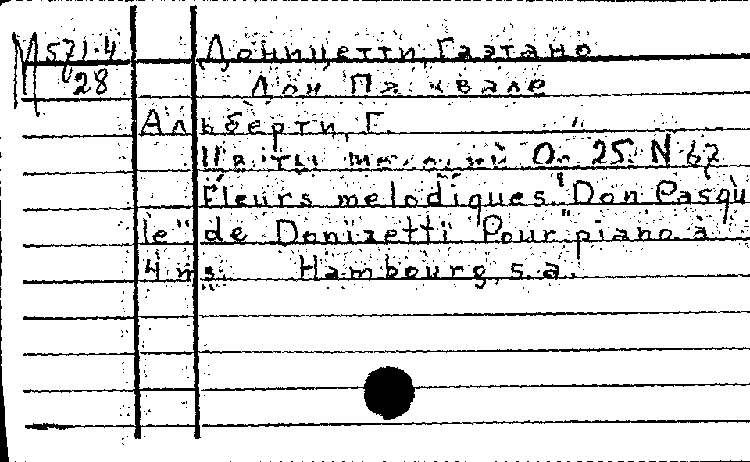 М 571.4 Доницетти, Гаэтано
28 Дон Пасквале
Альберти, Г.
Цветы мелодий Op. 25. N 67
Fleurs melodiques "Don Pasqu
le" de Donizetti Pour piano à
4 ms. Hambourg, s. a.